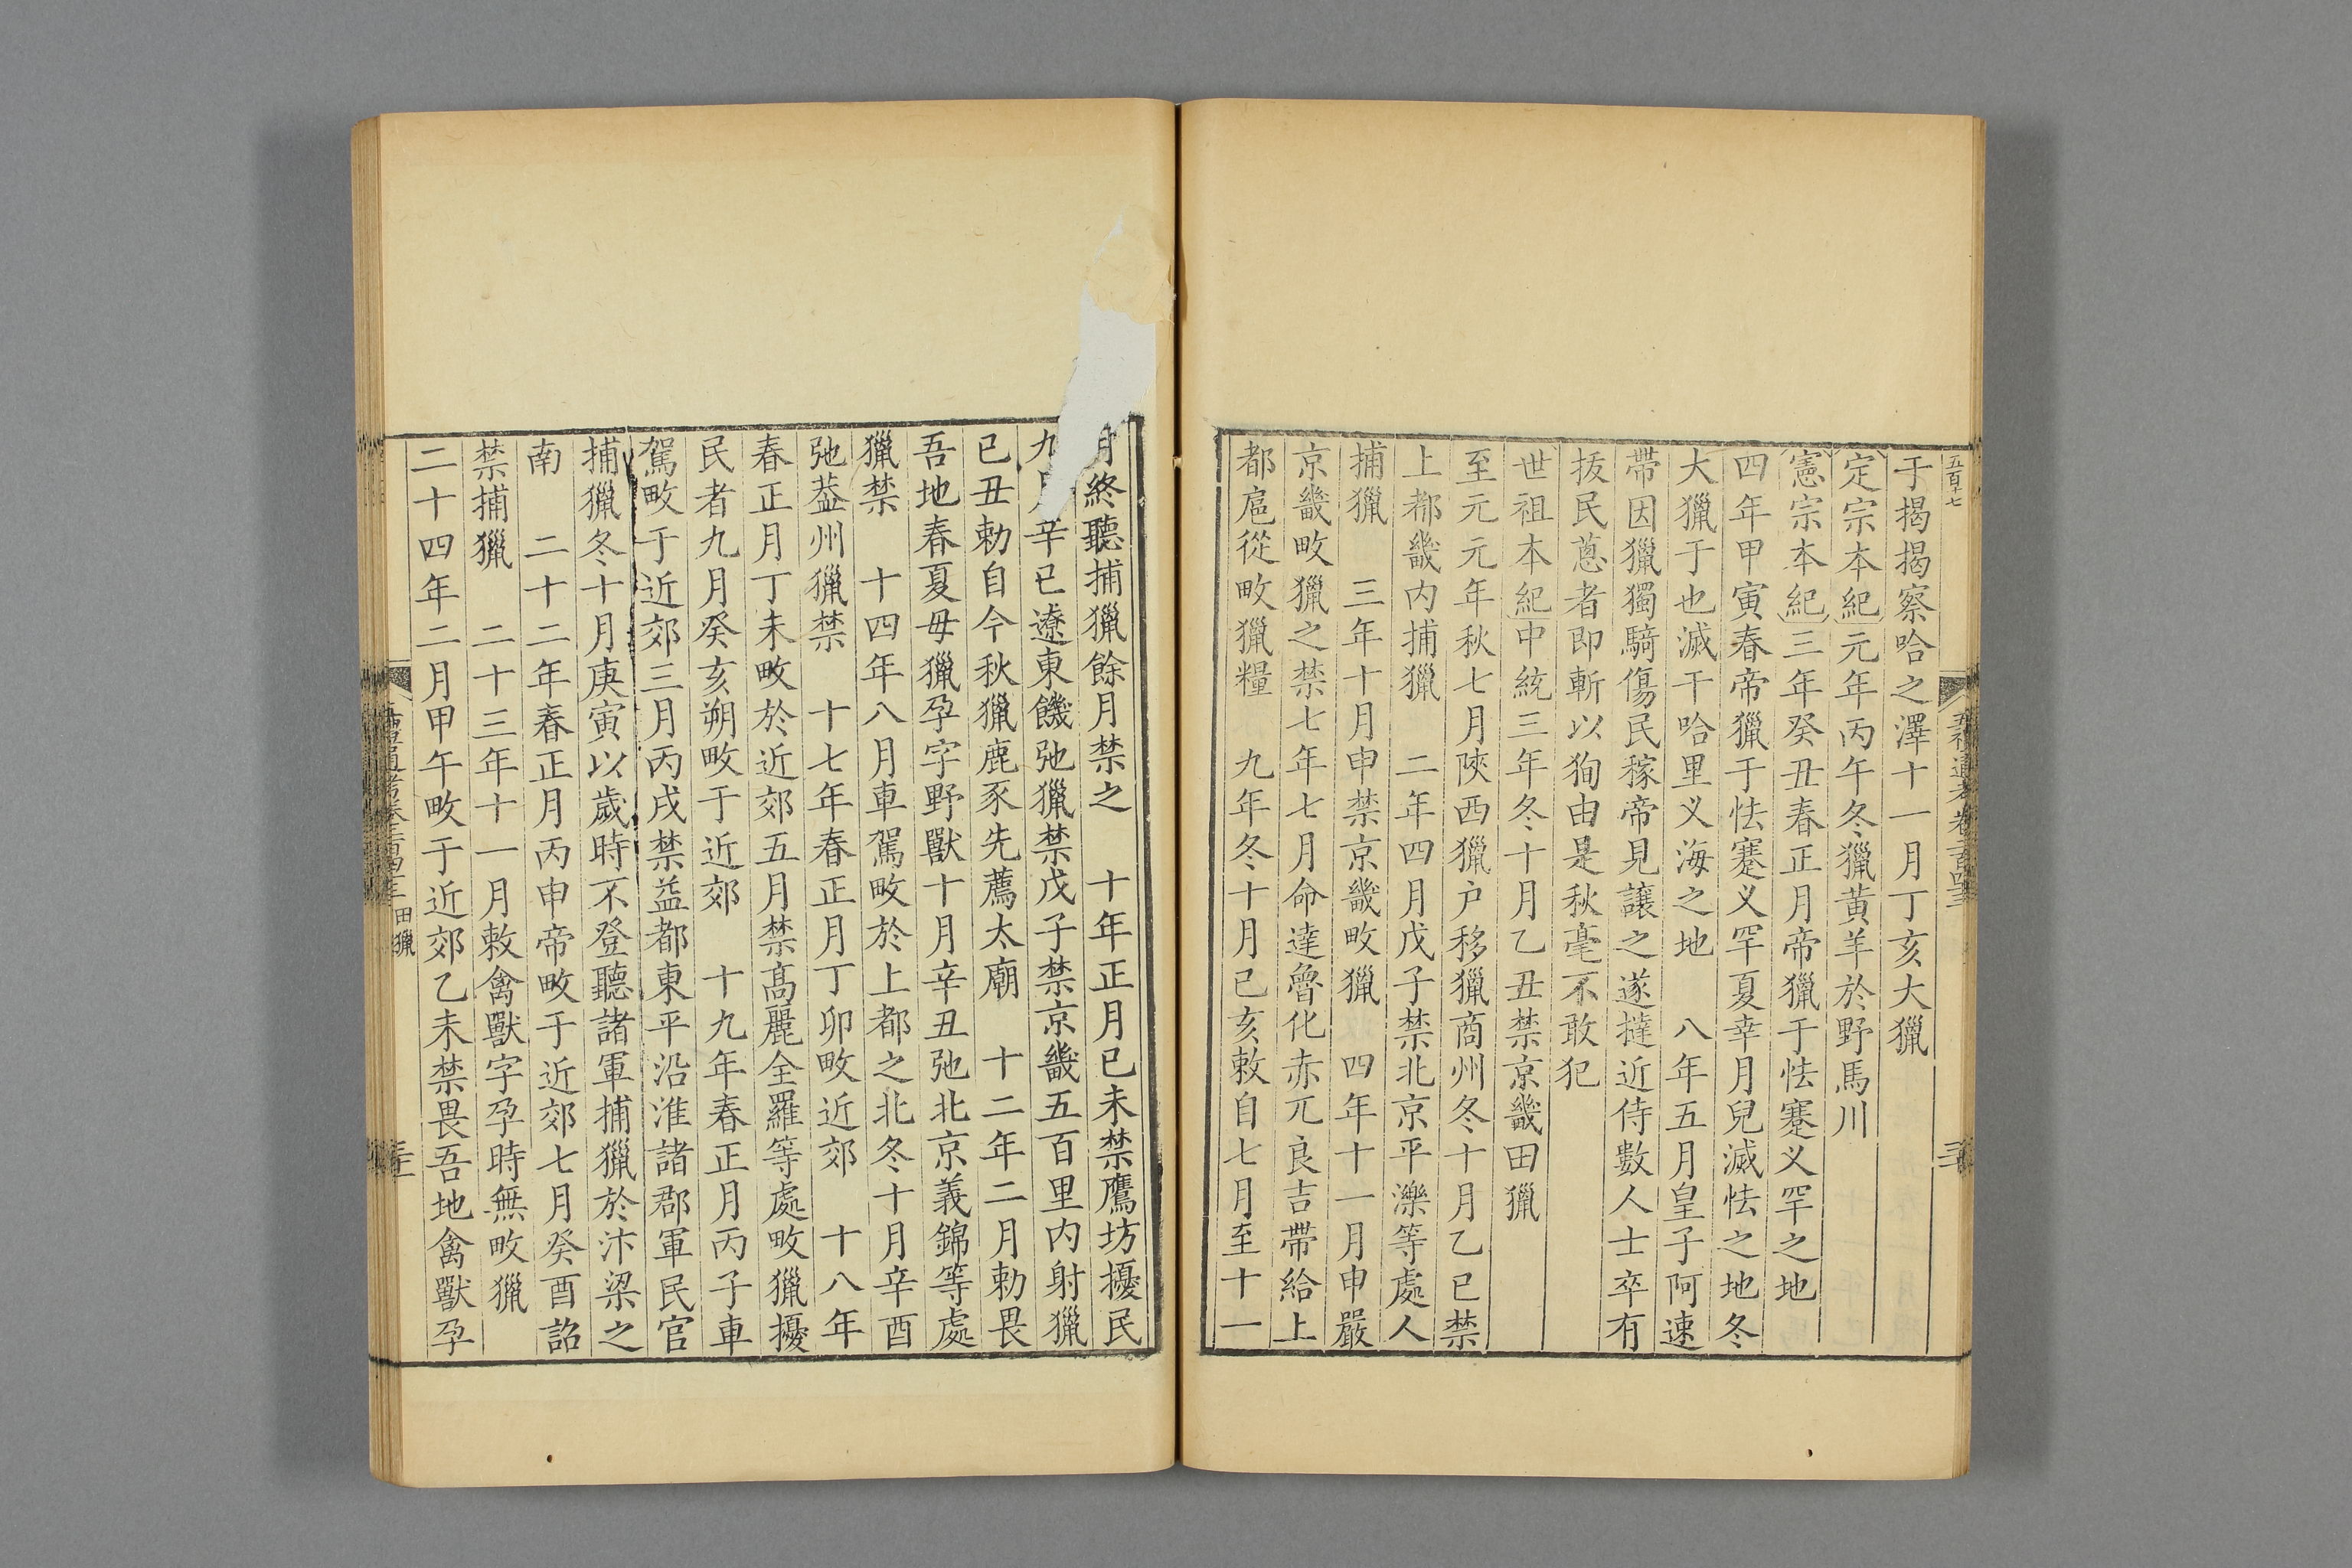 五百十七
于揭揭察哈之澤十一月丁亥大獵
定宗本紀元年丙午冬獵黄羊於野馬川
憲宗本紀三年癸丑春正月帝獵于怯蹇义罕之地
四年甲寅春帝獵于怯蹇义罕夏幸月兒滅怯之地冬
大獵于也滅干哈里义海之地　八年五月皇子阿速
帶因獵獨騎傷民稼帝見讓之遂撻近侍數人士卒有
拔民蔥者即斬以狥由是秋毫不敢犯
世祖本紀中統三年冬十月乙丑禁京畿田獵
至元元年秋七月陝西獵户移獵商州冬十月乙已禁
上都畿内捕獵　二年四月戊子禁北京平灤等處人
捕獵　三年十月申禁京畿畋獵　四年十一月申嚴
京畿畋獵之禁七年七月命達魯化赤兀良吉帶給上
都扈從畋獵糧　九年冬十月已亥敕自七月至十一
月終聽捕獵餘月禁之　十年正月已未禁鷹坊擾民
九月辛已遼東饑弛獵禁戊子禁京畿五百里内射獵
已丑勅自今秋獵鹿豕先薦太廟　十二年二月勅畏
吾地春夏毋獵孕字野獸十月辛丑弛北京義錦等處
獵禁　十四年八月車駕畋於上都之北冬十月辛酉
弛葢州獵禁　十七年春正月丁卯畋近郊　十八年
春正月丁未畋於近郊五月禁髙麗全羅等處畋獵擾
民者九月癸亥朔畋于近郊　十九年春正月丙子車
駕畋于近郊三月丙戌禁益都東平沿淮諸郡軍民官
捕獵冬十月庚寅以歲時不登聽諸軍捕獵於汴梁之
南　二十二年春正月丙申帝畋于近郊七月癸酉詔
禁捕獵　二十三年十一月敕禽獸字孕時無畋獵
二十四年二月甲午畋于近郊乙未禁畏吾地禽獸孕
田獵